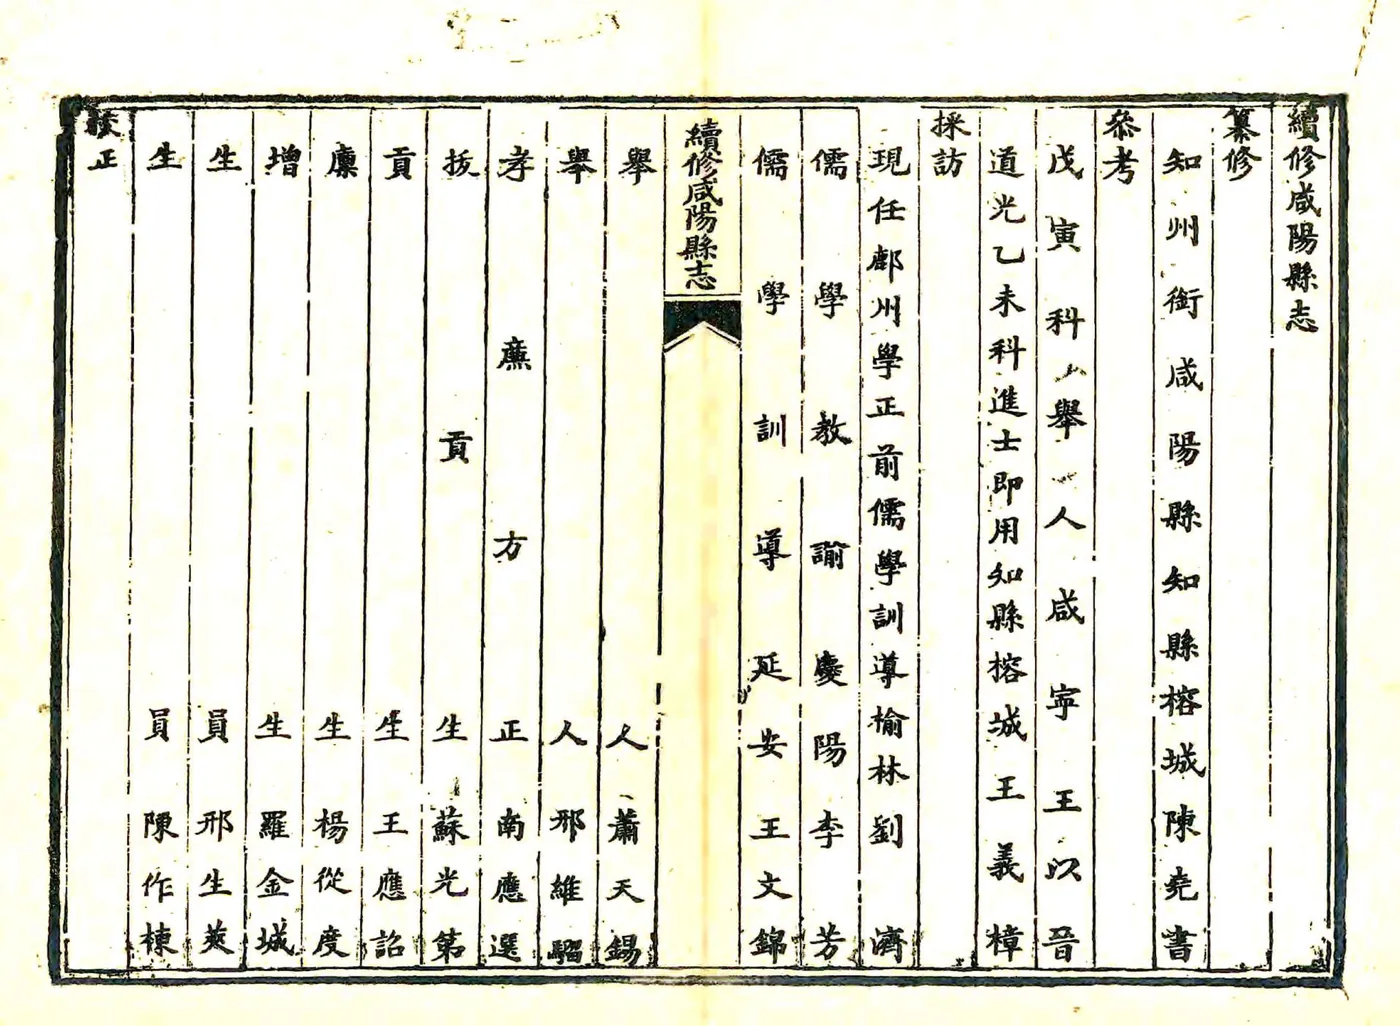 續修咸陽縣志
纂修
知州銜咸陽縣知縣榕城陳堯書
叅考
戊寅科舉人咸寧王以晉
道光乙未科進士即用知縣榕城王義樟
採訪
現任鄜州學正前儒學訓導榆林劉濟
儒學教諭慶陽李芳
儒學訓導延安王文錦
續修咸陽縣志
舉人蕭天錫
舉人邢維騮
孝廉方正南應選
拔貢生蘇光第
貢生王應詔
廩生楊從度
增生羅金城
生員邢生萊
生員陳作棟
校正